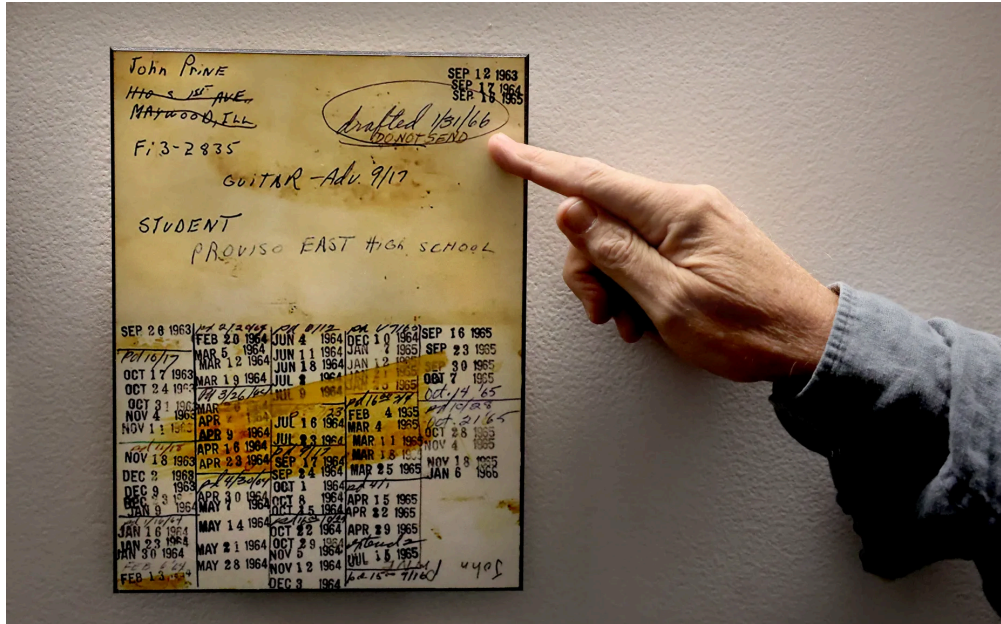 John Prine
SEP 12 1963
SEP 17 1964
SEP 16 1965
S 1ST AVE.
MAYWOOD, ILL
drafted 1/31/66
DO NOT SEND
Fi3-2835
GUITAR - Adv. 9/17
STUDENT
PROVISO EAST HIGH SCHOOL
SEP 26 1963
pd 10/17
OCT 17 1963
OCT 24 1963
OCT 31 1963
NOV 4 1963
NOV 11 1963
NOV 18 1963
DEC 2 1963
DEC 9 1963
JAN 9 1964
JAN 16 1964
JAN 23 1964
JAN 30 1964
FEB 6 64
FEB 13
FEB 20 1964
MAR 5 1964
MAR 12 1964
MAR 19 1964
pd 3/26/64
MAR
APR 1964
APR 9 1964
APR 16 1964
APR 23 1964
pd 4/30/64
APR 30 1964
MAY 7 1964
MAY 14 1964
MAY 21 1964
MAY 28 1964
JUN 4 1964
JUN 11 1964
JUN 18 1964
JUL 1964
JUL 9 1964
JUL 16 1964
JUL 23 1964
pd 9/17
SEP 17 1964
SEP 24 1964
OCT 1 1964
OCT 8 1964
OCT 15 1964
OCT 22 1964
OCT 29 1964
NOV 5 1964
NOV 12 1964
DEC 3 1964
DEC 10 1964
JAN 7 1965
JAN 12
FEB 4 1965
MAR 4 1965
MAR 11 1965
MAR 18 1965
MAR 25 1965
pd 4/1
APR 15 1965
APR 22 1965
APR 29 1965
JUL 15 1965
SEP 16 1965
SEP 23 1965
SEP 30 1965
OCT 7 1965
Oct. 14 '65
pd 10/28
Oct. 21 '65
OCT 28 1965
NOV 4 1965
NOV 18 1965
JAN 6 1965
John Prine